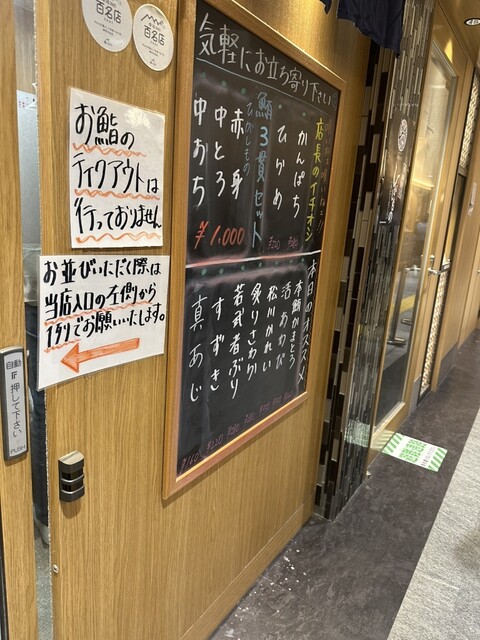 百名店
百名店
お鮨の
テイクアウトは
行っておりません
お並びいただく際は
当店入口の左側から
1列でお願いいたします。
自動
押して下さい
PUSH
気軽にお立ち寄り下さい
店長のイチオシ
かんぱち
ひらめ
鮪3貫セット
ひがしもの
赤身
中とろ
中おち
¥1,000
本日のオススメ
本鮪かまとろ
活あわび
松川かれい
炙りさわら
若武者ぶり
すずき
真あじ